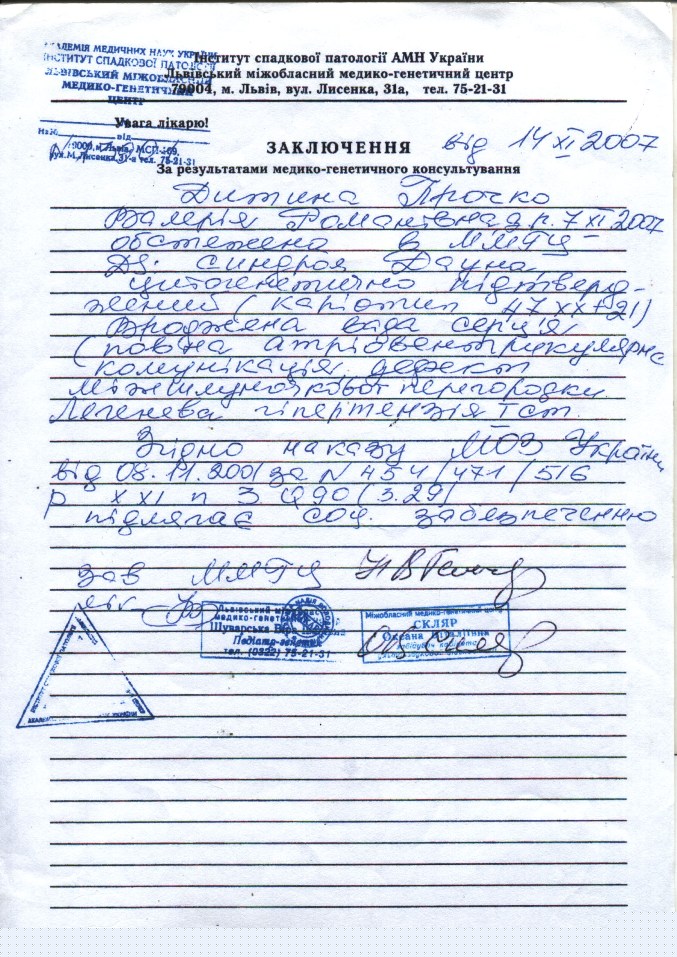 АКАДЕМІЯ МЕДИЧНИХ НАУК УКРАЇНИ
ІНСТИТУТ СПАДКОВОЇ ПАТОЛОГІЇ
ЛЬВІВСЬКИЙ МІЖОБЛАСНИЙ
МЕДИКО-ГЕНЕТИЧНИЙ
ЦЕНТР
від
79000, м. Львів, МСП
вул. М. Лисенка, 31-а тел. 75-21-31
Інститут спадкової патології АМН України
Львівський міжобласний медико-генетичний центр
79004, м. Львів, вул. Лисенка, 31а, тел. 75-21-31
Увага лікарю!
ЗАКЛЮЧЕННЯ від 14 XI 2007
За результатами медико-генетичного консультування
Дитина Прочко
Валерія Романівна д.р. 7 XI 2007
обстежена в ММГЦ
DS: синдром Дауна,
цитогенетично підтверд-
жений (каріотип 47 XX+21)
Вроджена вада серця
(повна атріовентрикулярна
комунікація, дефект
міжшлуночкової перегородки.
Легенева гіпертензія I ст.
Згідно наказу МОЗ України
від 08.11.2001 за N 454/471/516
р XXI п 3 Q90 (3.29)
підлягає соц. забезпеченню
зав ММГЦ
Львівський
медико-генетичний
Шуварська
Педіатр-генетик
тел. (0322) 75-21-31
Міжобласний медико-генетичний центр
СКЛЯР
Оксана Віталіївна